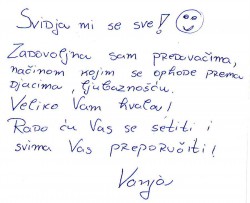 Svidja mi se sve!
Zadovoljna sam predavačima,
načinom kojim se ophode prema
djacima, ljubaznošću.
Veliko Vam hvala!
Rado ću Vas se setiti i
svima Vas preporučiti!
Vanja